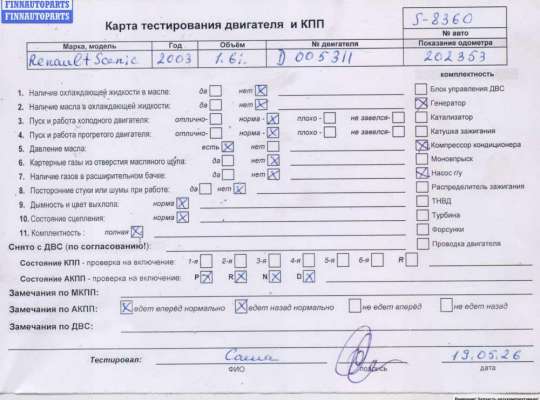 FINNAUTOPARTS
FINNAUTOPARTS
FINNAUTOPARTS
Карта тестирования двигателя и КПП
S-8360
№ авто
Марка, модель Год Объём № двигателя Показание одометра
Renault Scenic 2003 1.6i. D 005311 202353
комплектность
1. Наличие охлаждающей жидкости в масле: да нет
2. Наличие масла в охлаждающей жидкости: да нет
3. Пуск и работа холодного двигателя: отлично- норма - плохо - не завелся-
4. Пуск и работа прогретого двигателя: отлично- норма - плохо - не завелся-
5. Давление масла: есть нет
6. Картерные газы из отверстия масляного щупа: да нет
7. Наличие газов в расширительном бачке: да нет
8. Посторонние стуки или шумы при работе: да нет
9. Дымность и цвет выхлопа: норма
10. Состояние сцепления: норма
11. Комплектность : полная
Блок управления ДВС
Генератор
Катализатор
Катушка зажигания
Компрессор кондиционера
Моновпрыск
Насос г/у
Распределитель зажигания
ТНВД
Турбина
Форсунки
Проводка двигателя
Снято с ДВС (по согласованию!):
Состояние КПП - проверка на включение: 1-я 2-я 3-я 4-я 5-я 6-я R
Состояние АКПП - проверка на включение: P R N D
Замечания по МКПП:
Замечания по АКПП: едет вперёд нормально едет назад нормально не едет вперёд не едет назад
Замечания по ДВС:
Тестировал: Саша 19.05.26
ФИО подпись дата